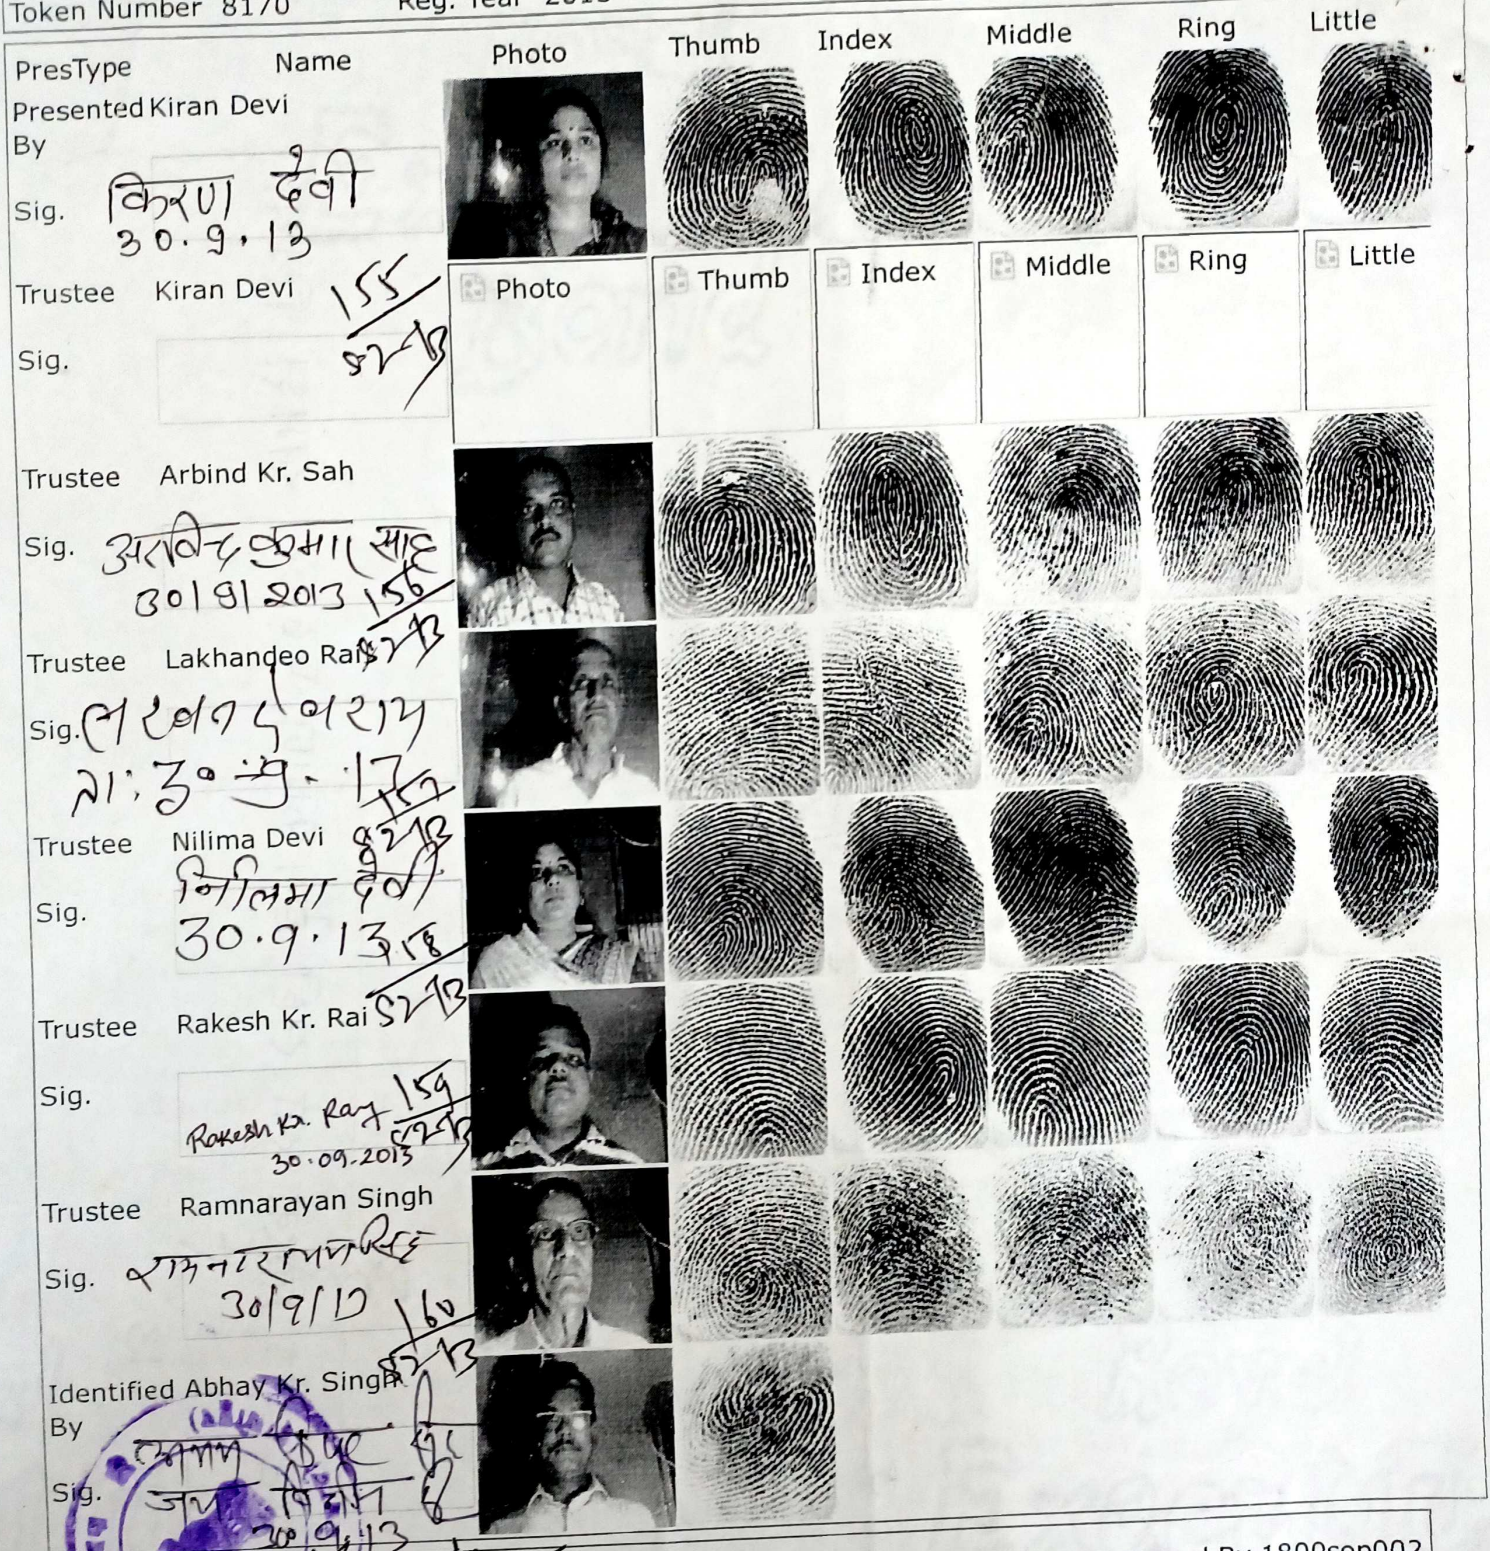 Token Number 8170 Reg. Year
PresType Name Photo Thumb Index Middle Ring Little
Presented Kiran Devi
By
Sig. किरण देवी
30.9.13
Trustee Kiran Devi 155
Photo Thumb Index Middle Ring Little
Sig. 82-13
Trustee Arbind Kr. Sah
Sig. अरविन्द कुमार साह
30/9/2013 156
82-13
Trustee Lakhandeo Rai
Sig. लखनदेव राय
ता: 30-9-13
157
82-13
Trustee Nilima Devi
निलिमा देवी
Sig.
30.9.13 158
82-13
Trustee Rakesh Kr. Rai
Sig. 159
Rakesh Kr. Ray 82-13
30.09.2013
Trustee Ramnarayan Singh
Sig. रामनारायण सिंह
30/9/13 160
82-13
Identified Abhay Kr. Singh
By
Sig.
30.9.13